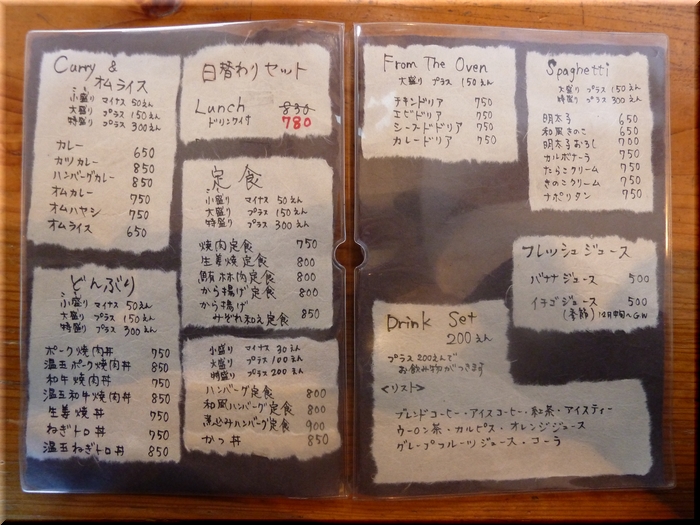 Curry &
オムライス
小盛り マイナス 50えん
大盛り プラス 150えん
特盛り プラス 300えん
カレー 650
カツカレー 850
ハンバーグカレー 850
オムカレー 750
オムハヤシ 750
オムライス 650
どんぶり
小盛り マイナス 50えん
大盛り プラス 150えん
特盛り プラス 300えん
ポーク焼肉丼 750
温玉ポーク焼肉丼 850
和牛焼肉丼 750
温玉和牛焼肉丼 850
生姜焼丼 750
ねぎトロ丼 750
温玉ねぎトロ丼 850
日替わりセット
Lunch 830
ドリンク付 780
定食
小盛り マイナス 50えん
大盛り プラス 150えん
特盛り プラス 300えん
焼肉定食 750
生姜焼定食 800
鮪ホホ肉定食 800
から揚げ定食 800
から揚げ
みぞれ和え定食 850
小盛り マイナス 30えん
大盛り プラス 100えん
特盛り プラス 200えん
ハンバーグ定食 800
和風ハンバーグ定食 800
煮込みハンバーグ定食 900
かつ丼 850
From The Oven
大盛り プラス 150えん
チキンドリア 750
エビドリア 750
シーフードドリア 750
カレードリア 750
Spaghetti
大盛り プラス 150えん
特盛り プラス 300えん
明太子 650
和風きのこ 650
明太子おろし 700
カルボナーラ 750
たらこクリーム 750
きのこクリーム 750
ナポリタン 750
フレッシュジュース
バナナジュース 500
イチゴジュース 500
(季節) 12月中旬〜GW
Drink Set
200えん
プラス200えんで
お飲み物がつきます
<リスト>
ブレンドコーヒー・アイスコーヒー・紅茶・アイスティー
ウーロン茶・カルピス・オレンジジュース
グレープフルーツジュース・コーラ